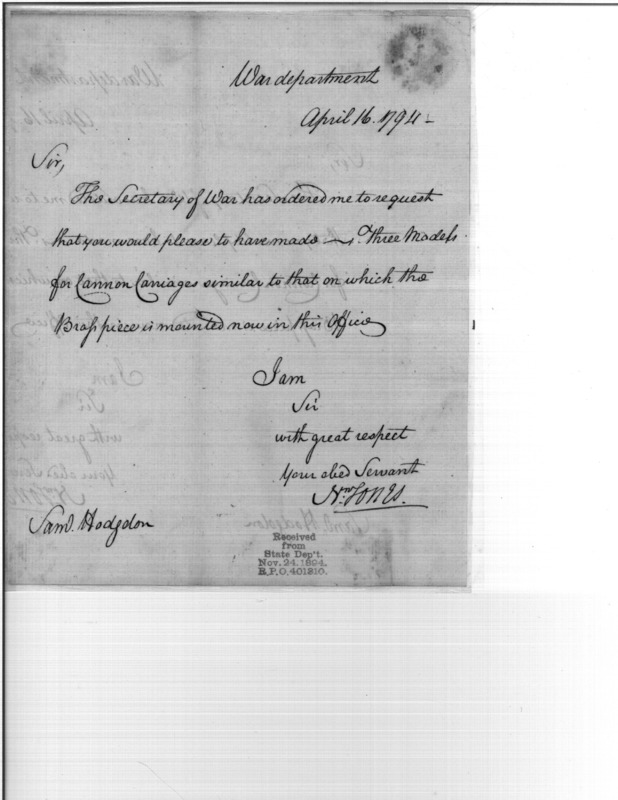 War department
April 16. 1794 -
Sir,
The Secretary of War has ordered me to request
that you would please to have made — Three Models
for Cannon Carriages similar to that on which the
Brass piece is mounted now in this Office
I am
Sir
with great respect
Your obed Servant
Nw Jones.
Saml. Hodgdon
Received
from
State Dep't.
Nov. 24. 1894.
R.P.O. 401310.